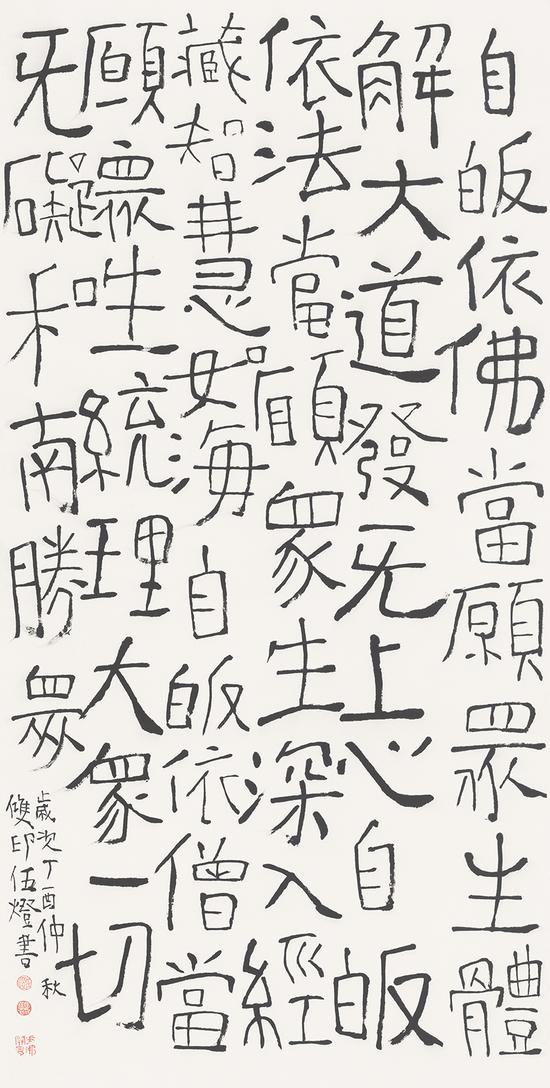 自皈依佛當願眾生體
解大道發无上心自皈
依法當願眾生深入經
藏智慧如海自皈依僧當
願眾生統理大眾一切
无礙和南勝眾
歲次丁酉仲秋
雙印伍燈書